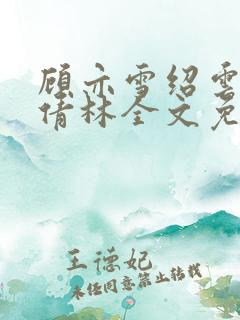 顾亦雪绍雲
倩林全文免
王德妃
未经同意禁止转载